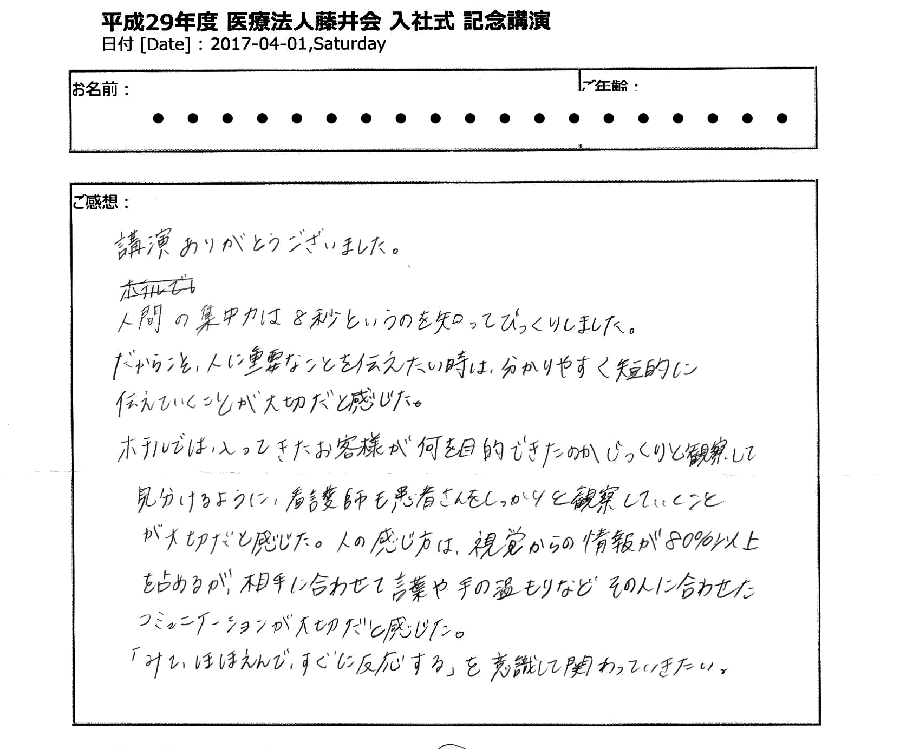 平成29年度 医療法人藤井会 入社式 記念講演
日付 [Date] : 2017-04-01,Saturday
お名前：
ご年齢：
ご感想：
講演ありがとうございました。
ホテルで
人間の集中力は8秒というのを知ってびっくりしました。
だからこそ、人に重要なことを伝えたい時は、分かりやすく短的に
伝えていくことが大切だと感じた。
ホテルでは、入ってきたお客様が何を目的できたのかじっくりと観察して
見分けるように、看護師も患者さんをしっかりと観察していくこと
が大切だと感じた。人の感じ方は、視覚からの情報が80%以上
を占めるが、相手に合わせて言葉や手の温もりなどその人に合わせた
コミュニケーションが大切だと感じた。
「みて、ほほえんで、すぐに反応する」を意識して関わっていきたい。